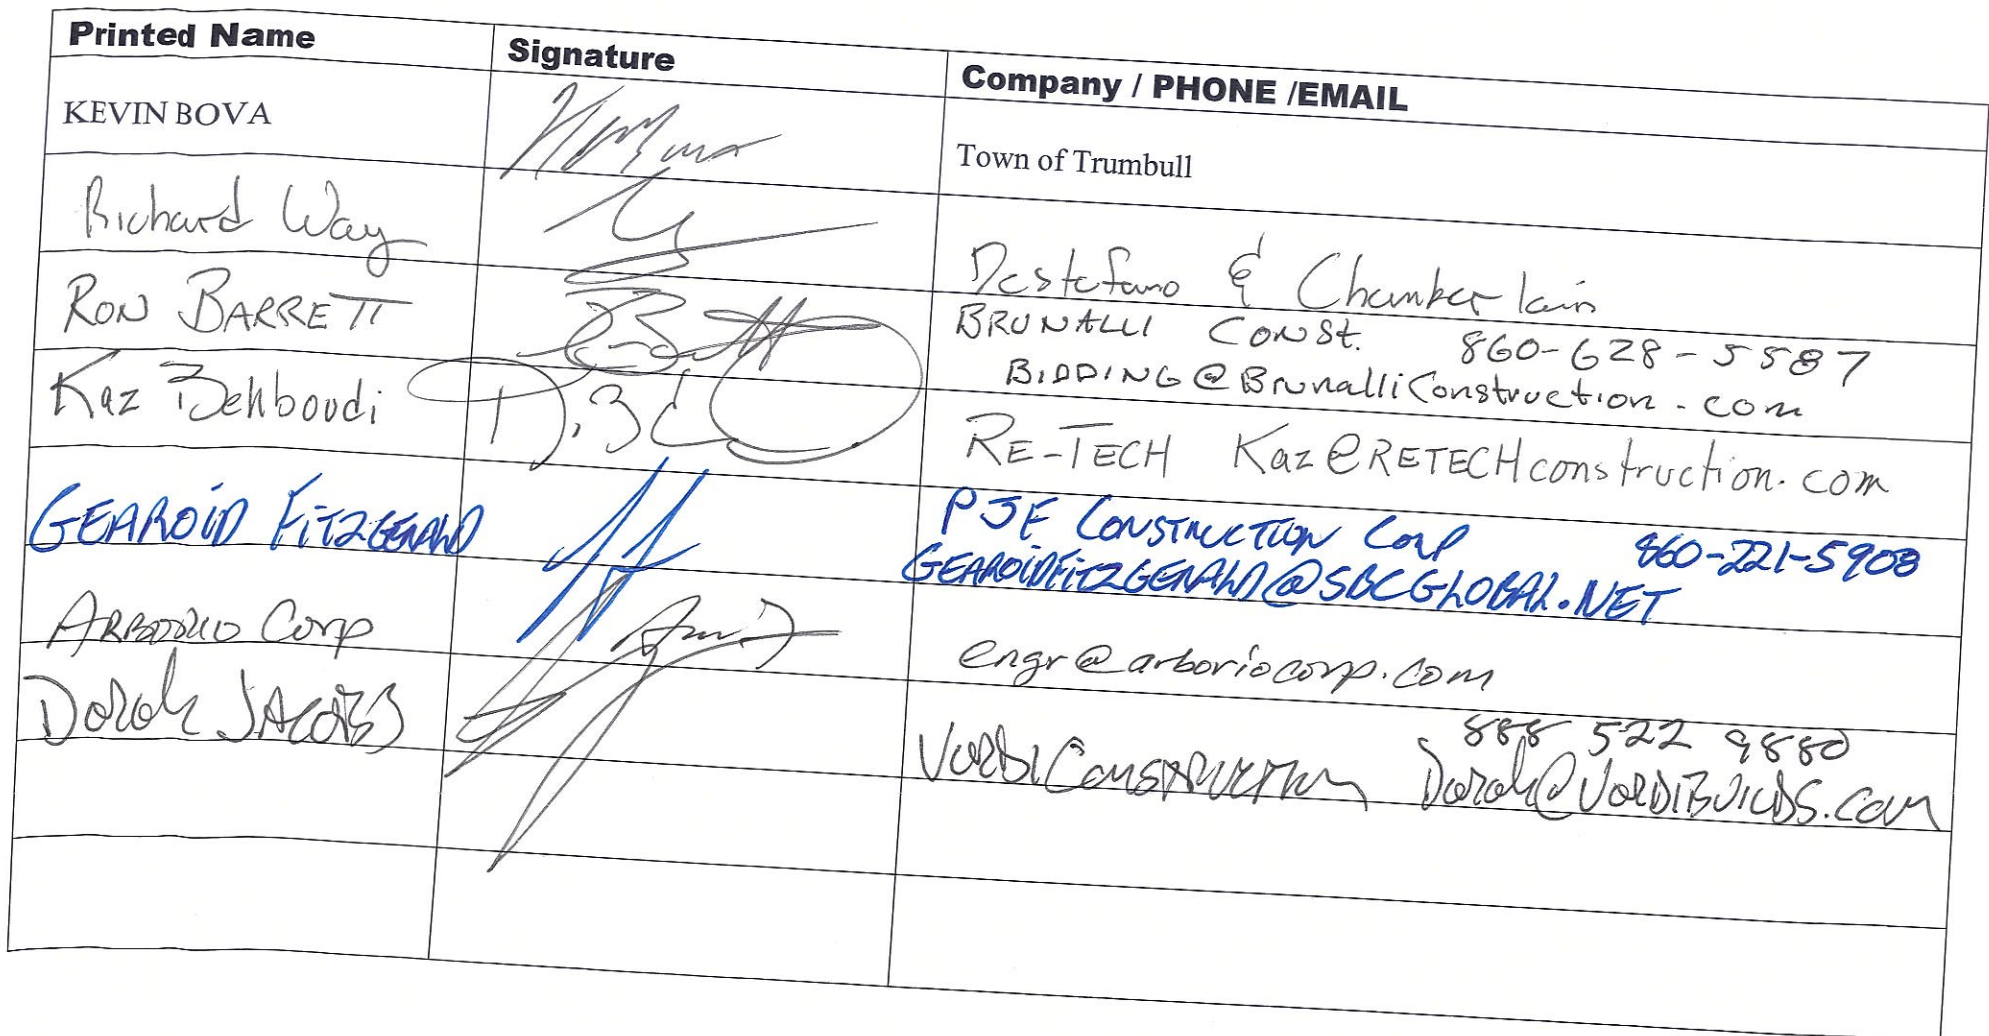 Printed Name Signature Company / PHONE /EMAIL
KEVIN BOVA Town of Trumbull
Richard Way Destefano & Chamberlain
RON BARRETT BRUNALLI CONST. 860-628-5587
BIDDING@BrunalliConstruction.com
Kaz Behboudi RE-TECH Kaz@RETECHconstruction.com
GEAROID FITZGERALD PJF CONSTRUCTION CORP 860-221-5908
GEAROIDFITZGERALD@SBCGLOBAL.NET
ARBORIO Corp engr@arboriocorp.com
JACOBS 888 522 9880
CONSTRUCTION